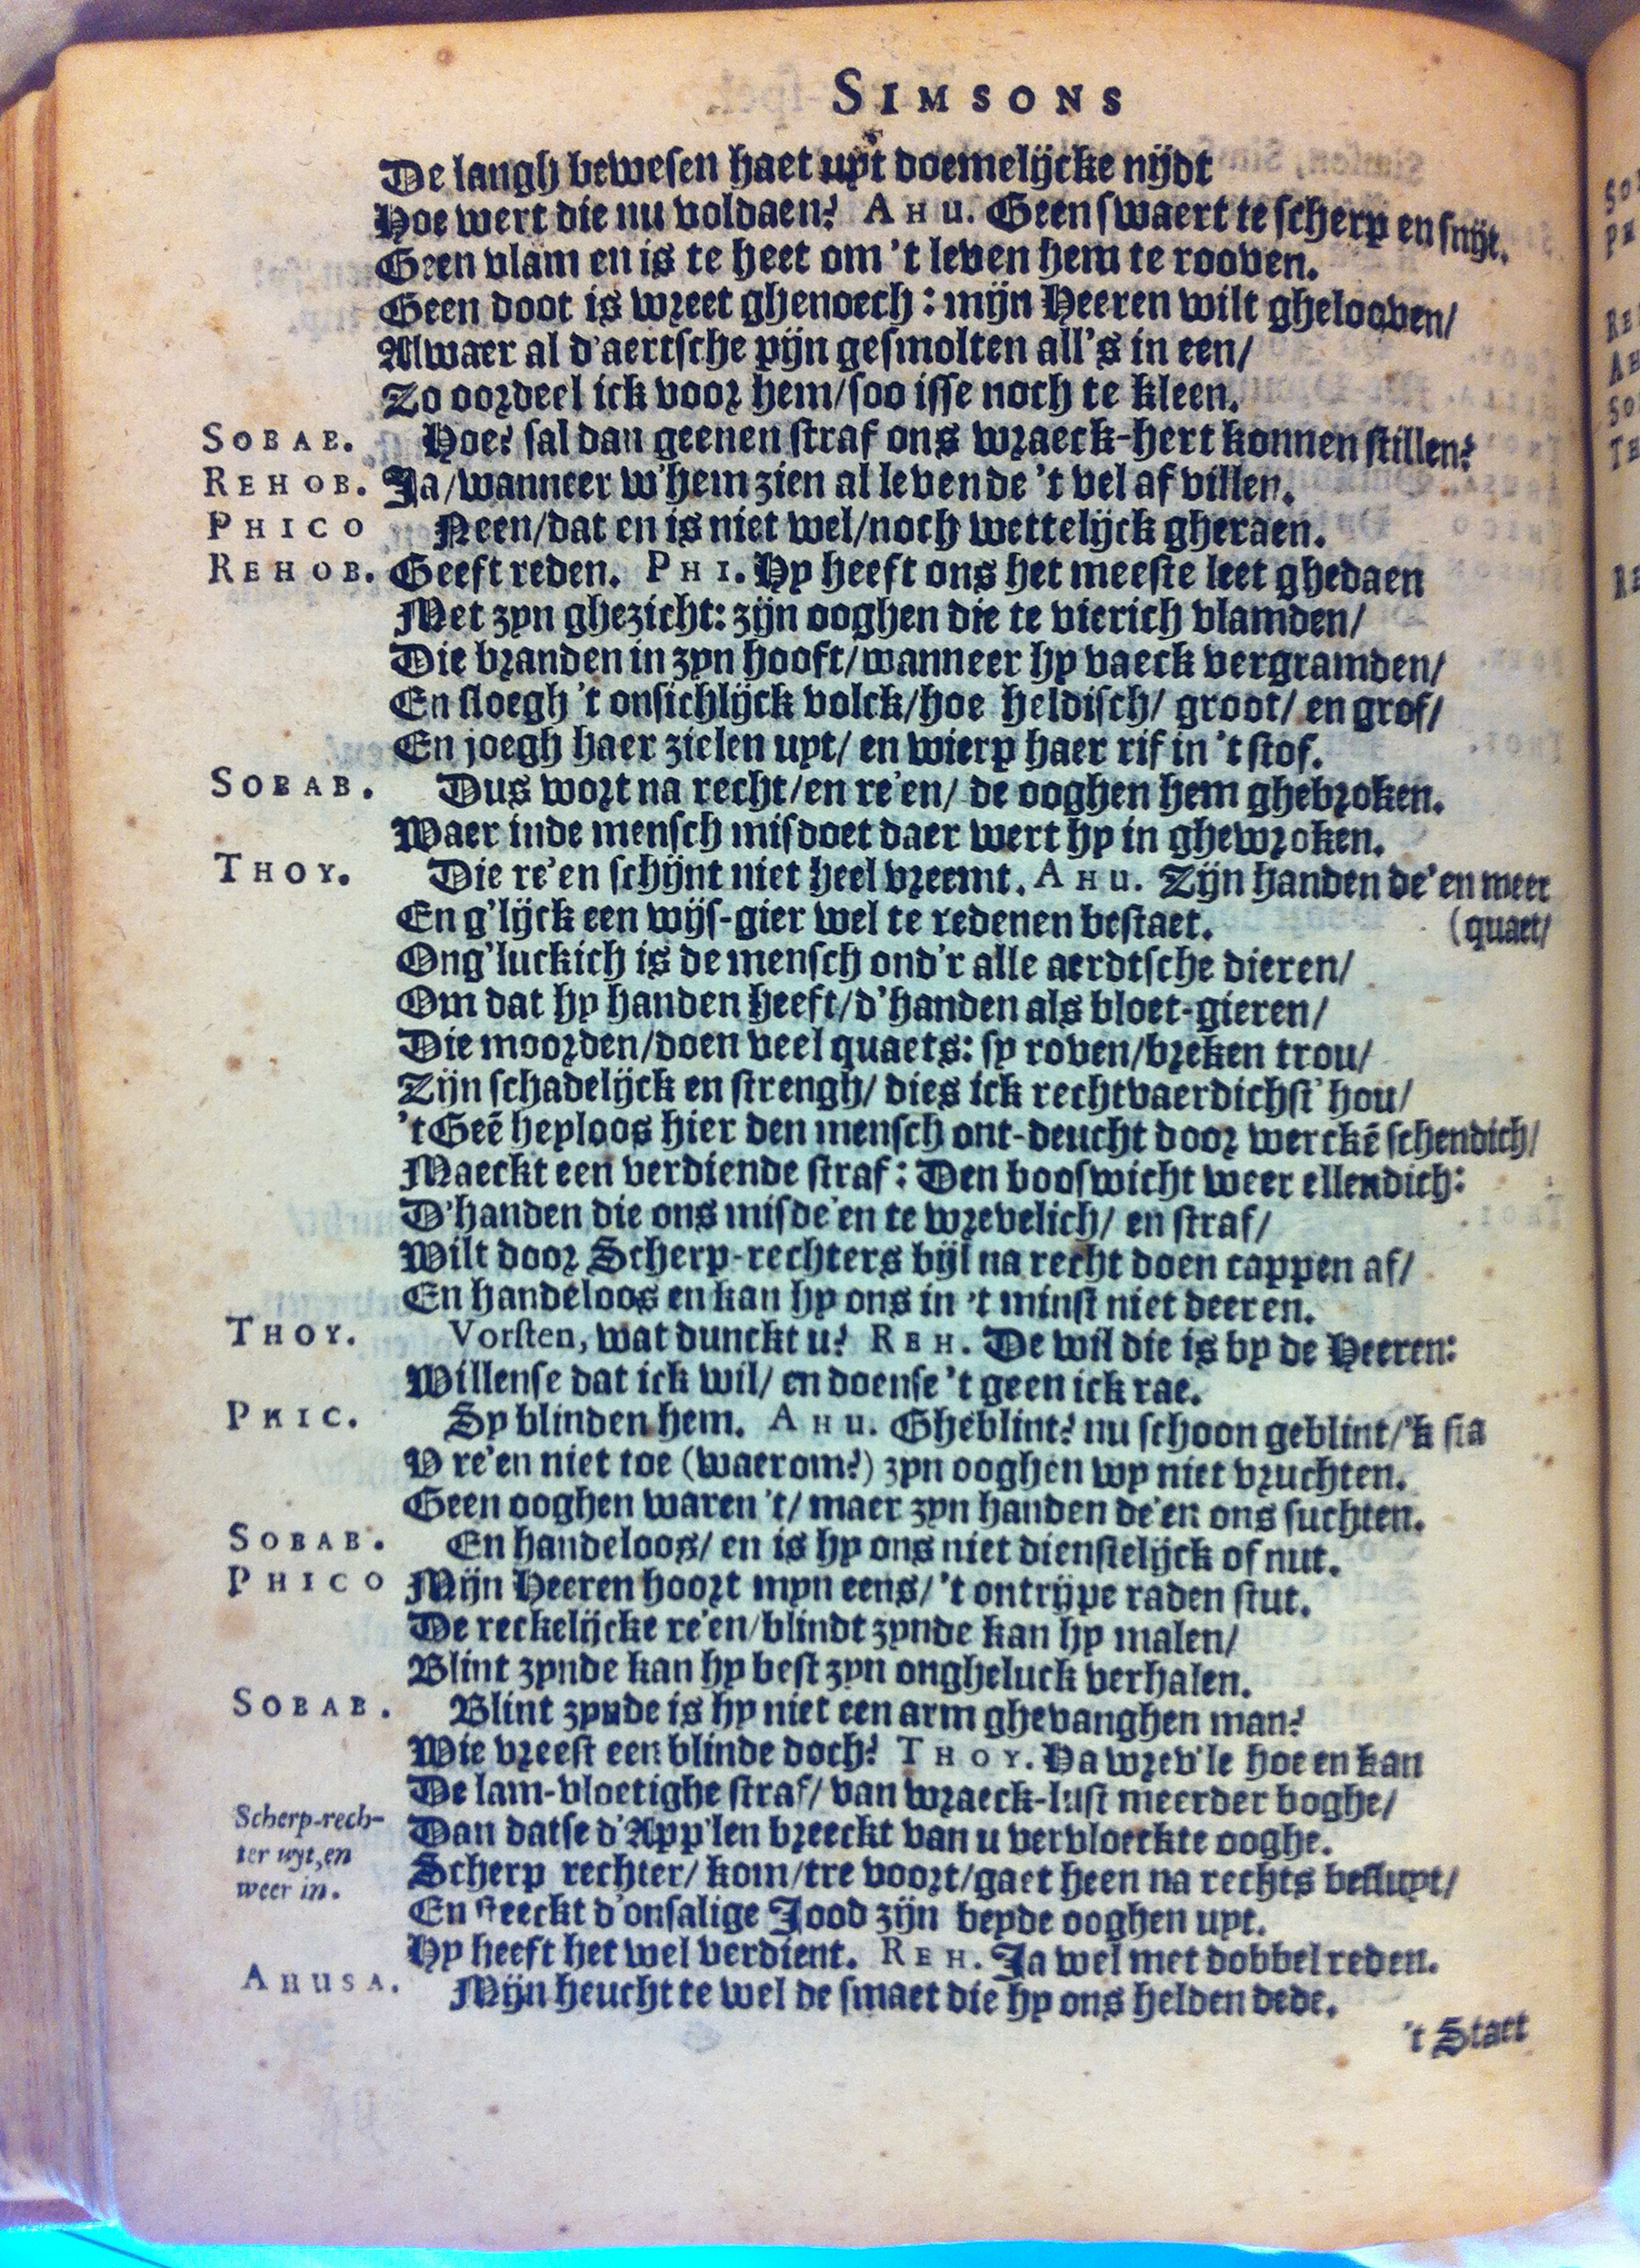 SIMSONS
De langh bewesen haet uyt doemelijcke nijdt
Hoe wert die nu voldaen? AHU. Geen swaert te scherp en snijt.
Geen vlam en is te heet om 't leven hem te rooven.
Geen doot is wreet ghenoech: mijn Heeren wilt ghelooven/
Alwaer al d'aertsche pijn gesmolten all's in een/
Zo oordeel ick voor hem/soo isse noch te kleen.
SOBAB. Hoe? sal dan geenen straf ons wraeck-hert konnen stillen?
REHOB. Ja/wanneer w'hem zien al levende 't vel af villen.
PHICO Neen/dat en is niet wel/noch wettelijck gheraen.
REHOB. Geeft reden. PHI. Hy heeft ons het meeste leet ghedaen
Met zyn ghezicht: zijn ooghen die te vierich vlamden/
Die branden in zyn hooft/wanneer hy vaeck vergramden/
En sloegh 't onsichlijck volck/hoe heldisch/ groot/ en grof/
En joegh haer zielen uyt/ en wierp haer rif in 't stof.
SOBAB. Dus wort na recht/en re'en/ de ooghen hem ghebroken.
Waer inde mensch misdoet daer wert hy in ghewroken.
THOY. Die re'en schijnt niet heel vreemt. AHU. Zijn handen de'en meer
En g'lijck een wijs-gier wel te redenen bestaet. (quaet/
Ong'luckich is de mensch ond'r alle aerdtsche dieren/
Om dat hy handen heeft/d'handen als bloet-gieren/
Die moorden/doen veel quaets: sy roven/breken trou/
Zijn schadelijck en strengh/ dies ick rechtvaerdichst' hou/
't Geē heyloos hier den mensch ont-deucht door werckē schendich/
Maeckt een verdiende straf: Den booswicht weer ellendich:
D'handen die ons misde'en te wrevelich/ en straf/
Wilt door Scherp-rechters bijl na recht doen cappen af/
En handeloos en kan hy ons in 't minst niet deeren.
THOY. Vorsten, wat dunckt u? REH. De wil die is by de Heeren:
Willense dat ick wil/ en doense 't geen ick rae.
PHIC. Sy blinden hem. AHU. Gheblint? nu schoon geblint/'k sta
U re'en niet toe (waerom?) zyn ooghen wy niet vruchten.
Geen ooghen waren 't/ maer zyn handen de'en ons suchten.
SOBAB. En handeloos/ en is hy ons niet dienstelijck of nut.
PHICO Mijn Heeren hoort myn eens/ 't ontrijpe raden stut.
De reckelijcke re'en/blindt zynde kan hy malen/
Blint zynde kan hy best zyn ongheluck verhalen.
SOBAB. Blint zynde is hy niet een arm ghevanghen man?
Wie vreest een blinde doch? THOY. Na wrev'le hoe en kan
De lam-vloetighe straf/ van wraeck-lust meerder boghe/
Dan datse d'App'len breeckt van u vervloeckte ooghe.
Scherp-rech-
ter uyt, en
weer in.
Scherp rechter/ kom/tre voort/gaet heen na rechts besluyt/
En steeckt d'onsalige Jood zijn beyde ooghen uyt.
Hy heeft het wel verdient. REH. Ja wel met dobbel reden.
AHUSA. Mijn heucht te wel de smaet die hy ons helden dede.
't Statt